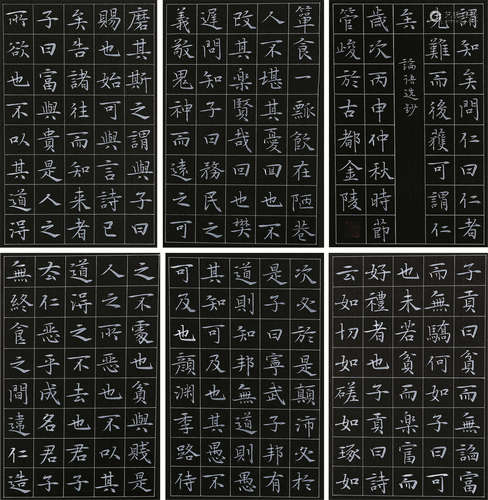 子貢曰貧而無諂富
而無驕何如子曰可
也未若貧而樂富而
好禮者也子貢曰詩
云如切如磋如琢如
磨其斯之謂與子曰
賜也始可與言詩已
矣告諸往而知來者
子曰富與貴是人之
所欲也不以其道得
之不處也貧與賤是
人之所惡也不以其
道得之不去也君子
去仁惡乎成名君子
無終食之間違仁造
次必於是顛沛必於
是子曰寧武子邦有
道則知邦無道則愚
其知可及也其愚不
可及也顏淵季路侍
簞食一瓢飲在陋巷
人不堪其憂回也不
改其樂賢哉回也樊
遲問知子曰務民之
義敬鬼神而遠之可
謂知矣問仁曰仁者
先難而後獲可謂仁
矣
論語選抄
歲次丙申仲秋時節
管峻於古都金陵